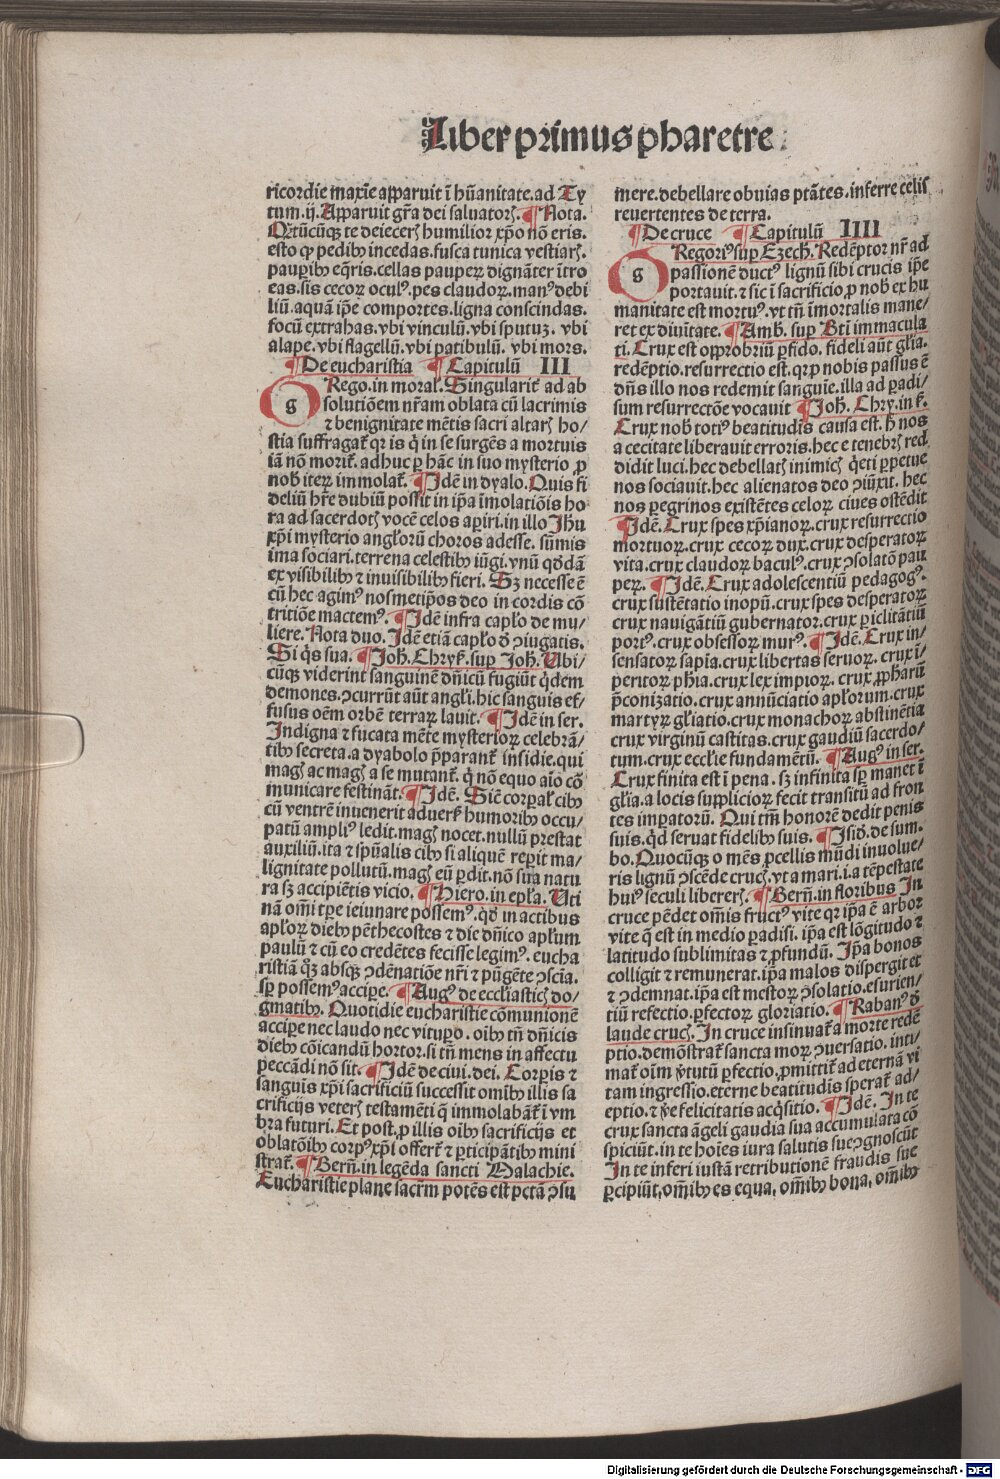 Liber primus pharetre
ricordie maxīe apparuit ī hūanitate. ad Ty
tum. ij. Apparuit gr̄a dei saluatorꝭ. ¶ Nota.
Q̄tūcūqꝫ te deiecerꝭ humilior xp̄o nō eris.
esto ꝙ pedibꝰ incedas. fusca tunica vestiarꝭ.
pauꝑibꝰ eq̄ris. cellas pauperꝝ dignāter ītro
eas. sis cecoꝝ oculꝰ. pes claudoꝝ. manꝰ debi
liū. aquā ip̄e comportes. ligna conscindas.
focū extrahas. vbi vinculū. vbi sputuꝫ. vbi
alape. vbi flagellū. vbi patibulū. vbi mors.
¶ De eucharistia ¶ Capitulū III
g Rego. in moral̄. Singularit̄ ad ab
solutiōem nr̄am oblata cū lacrimis
⁊ benignitate mētis sacri altarꝭ ho/
stia suffragat̄ qꝛ is q̄ in se surgēs a mortuis
iā nō morit̄. adhuc ꝑ hāc in suo mysterio ꝓ
nob̄ iteꝝ immolat̄. ¶ Idē in dyalo. Quis fi
deliū hr̄e dubiū possit in ip̄a īmolatiōis ho
ra ad sacerdotꝭ vocē celos apiri. in illo Jh̄u
xp̄i mysterio angl̓orū choros adesse. sūmis
ima sociari. terrena celestibꝰ iūgi. vnū qd̄dā
ex visibilibꝰ ⁊ inuisibilibꝰ fieri. Sꝫ necesse ē
cū hec agimꝰ nosmetip̄os deo in cordis cō
tritiōe mactemꝰ. ¶ Idē infra capl̓o de mu/
liere. Nota duo. Idē etiā capl̓o d̄ ꝯiugatis.
Si q̄s sua. ¶ Joh̄. Chryẜ. sup Joh̄. Vbi/
cūqꝫ viderint sanguinē dn̄icū fugiūt q̄dem
demones. ꝯcurrūt aūt angl̓i. hic sanguis ef/
fusus oēm orbē terraꝝ lauit. ¶ Idē in ser.
Indigna ⁊ fucata mēte mysterioꝝ celebrā/
tibꝰ secreta. a dyabolo p̄parant̄ insidie. qui
magꝭ ac magꝭ a se mutant̄. q̄ nō equo aīo cō
municare festināt. ¶ Idē. Siē corpal̓ cibꝰ
cū ventrē inuenerit aduerẜ humoribꝰ occu/
patū ampliꝰ ledit. magꝭ nocet. nullū prestat
auxiliū. ita ⁊ spūalis cibꝰ si aliquē reperit ma/
lignitate pollutū. magꝭ eū ꝑdit. nō sua natu
ra sꝫ accipiētis vicio. ¶ Hiero. in epl̓a. Vti
nā om̄i tp̄e ieiunare possemꝰ. qd̄ in actibus
apl̓oꝝ diebꝰ pēthecostes ⁊ die dn̄ico apl̓um
paulū ⁊ cū eo credētes fecisse legimꝰ. eucha
ristiā qͦꝫ absqꝫ ꝯdēnatiōe nr̄i ⁊ pūgēte ꝯscīa.
sp̄ possemꝰ accipe. ¶ Augꝰ de eccl̓iasticꝭ do/
gmatibꝰ. Quotidie eucharistie cōmunionē
accipe nec laudo nec vitupo. oībꝰ tn̄ dn̄icis
diebꝰ cōicandū hortor. si tn̄ mens in affectu
peccādi nō sit. ¶ Idē de ciui. dei. Corpis ⁊
sanguis xp̄i sacrificiū successit omībꝰ illis sa
crificijs veterꝭ testamēti q̄ immolabāt̄ ī vm
bra futuri. Et post. ꝓ illis oībꝰ sacrificijs et
oblatōībꝰ corpꝰ xp̄i offert̄ ⁊ ꝑticipātibꝰ mini
strat̄. ¶ Bern̄. in legēda sancti Malachie.
Eucharistie plane sacrm̄ potēs est pctā ꝯsu
mere. debellare obuias ptātes. inferre celis
reuertentes de terra.
¶ De cruce ¶ Capitulū IIII
g Regoriꝰ sup Ezech̄. Redēptor nr̄ ad
passionē ductꝰ lignū sibi crucis ip̄e
portauit. ⁊ sic ī sacrificio ꝓ nob̄ ex hu
manitate est mortuꝰ. vt tn̄ īmortalis mane/
ret ex diuītate. ¶ Amb̄. sup Bt̄i immacula
ti. Crux est opprobriū ꝑfido. fideli aūt gl̓ia.
redēptio. resurrectio est. qꝛ ꝓ nobis passus ē
dn̄s illo nos redemit sanguīe. illa ad ꝑadi/
sum resurrectōe vocauit ¶ Joh̄. Chry. in ẜ.
Crux nob̄ totiꝰ beatitudis causa est. h̄ nos
a cecitate liberauit erroris. hec e tenebrꝭ red
didit luci. hec debellatꝭ inimicꝭ q̄eti ꝑpetue
nos sociauit. hec alienatos deo ꝯiūxit. hec
nos pegrinos existētes celoꝝ ciues ostēdit
¶ Idē. Crux spes xp̄ianoꝝ. crux resurrectio
mortuoꝝ. crux cecoꝝ dux. crux desperatoꝝ
vita. crux claudoꝝ baculꝰ. crux ꝯsolatō pau
peꝝ. ¶ Idē. Crux adolescentiū pedagogꝰ.
crux sustētatio inopū. crux spes desperatoꝝ
crux nauigātiū gubernator. crux ꝑiclitātiū
portꝰ. crux obsessoꝝ murꝰ. ¶ Idē. Crux in/
sensatoꝝ sapīa. crux libertas seruoꝝ. crux ī/
peritoꝝ phīa. crux lex impioꝝ. crux ꝓphaꝝ
p̄conizatio. crux annūciatio apl̓orum. crux
martyꝝ gl̓iatio. crux monachoꝝ abstinētia
crux virginū castitas. crux gaudiū sacerdo/
tum. crux eccl̓ie fundamētū. ¶ Augꝰ in ser.
Crux finita est ī pena. sꝫ infinita sp̄ manet ī
gl̓ia. a locis supplicioꝝ fecit transitū ad fron
tes impatorū. Qui tm̄ honorē dedit penis
suis. qd̄ seruat fidelibꝰ suis. ¶ Isid̄. de sum.
bo. Quocūqꝫ o mēs ꝓcellis mūdi inuolue/
ris lignū ꝯscēde crucꝭ. vt a mari. i. a tēpestate
huiꝰ seculi libererꝭ. ¶ Bern̄. in floribus In
cruce pēdet om̄is fructꝰ vite qꝛ ip̄a ē arbor
vite q̄ est in medio ꝑadisi. ip̄a est lōgitudo ⁊
latitudo sublimitas ⁊ ꝓfundū. Ip̄a bonos
colligit ⁊ remunerat. ip̄a malos dispergit et
⁊ ꝯdemnat. ip̄a est mestoꝝ ꝯsolatio. esurien/
tiū refectio. ꝑfectoꝝ gloriatio. ¶ Rabanꝰ d̄
laude crucꝭ. In cruce insinuat̄ a morte redē
ptio. demōstrat̄ sancta moꝝ ꝯuersatio. inti/
mat̄ oīm v̄tutū ꝑfectio, ꝓmittit̄ ad eternā vi
tam ingressio. eterne beatitudis sperat̄ ad/
eptio. ⁊ v̄e felicitatis acq̄sitio. ¶ Idē. In te
crux sancta āgeli gaudia sua accumulata cō
spiciūt. in te hoīes iura salutis sue ꝯgnoscūt
In te inferi iustā retributionē fraudis sue
ꝑcipiūt, om̄ibꝰ es equa, om̄ibꝰ bona, om̄ibꝰ
Digitalisierung gefördert durch die Deutsche Forschungsgemeinschaft - DFG